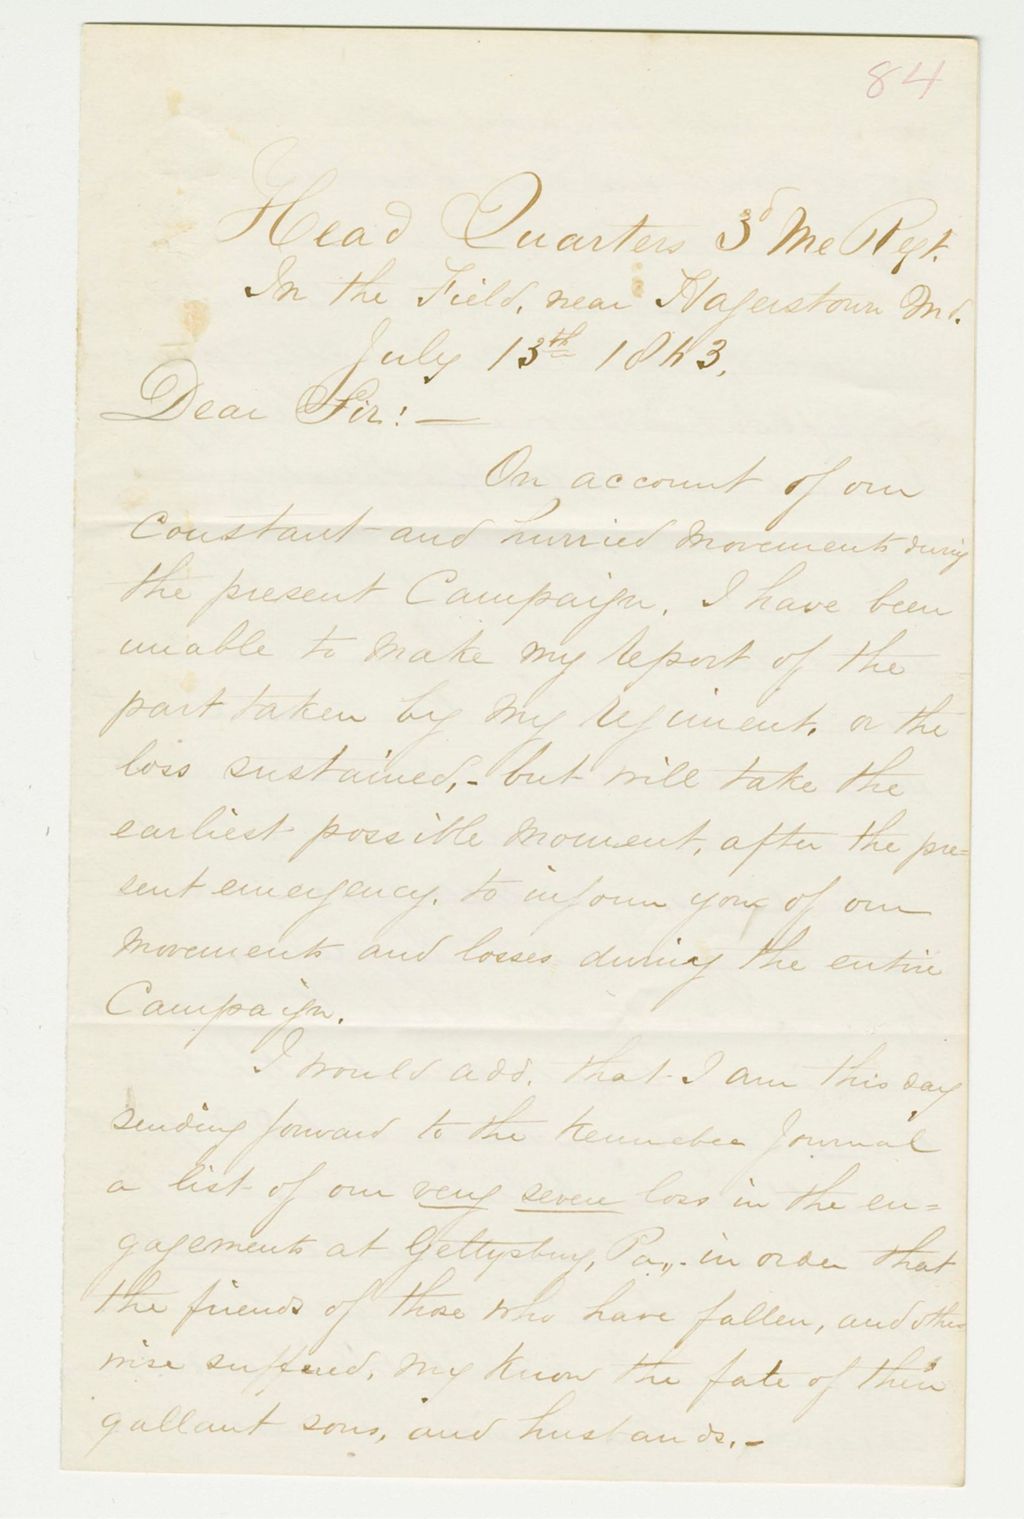 84
Head Quarters 3d Me Regt.
In the Field, near Hagerstown Md.
July 13th 1863.
Dear Sir! —
On account of our
constant and hurried movements during
the present Campaign, I have been
unable to make my report of the
part taken by my regiment, or the
loss sustained, - but will take the
earliest possible moment, after the pre=
sent emergency, to inform you of our
movements and losses during the entire
Campaign.
I would add, that I am this day
sending forward to the Kennebec Journal
a list of our very severe loss in the en=
gagements at Gettysburg, Pa,, - in order that
the friends of those who have fallen, and other
wise suffered, my know the fate of their
gallant sons, and husbands. -